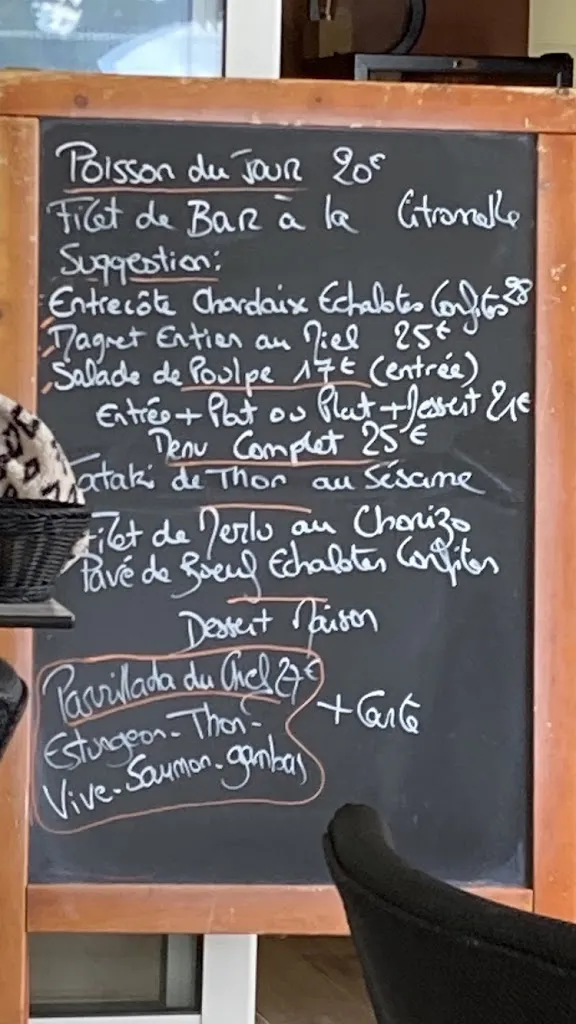 Poisson du Jour 20€
Filet de Bar à la Citronelle
Suggestion:
Entrecôte Chardaix Echalotes Confites 28
Magret Entier au Miel 25€
Salade de Poulpe 17€ (entrée)
Entrée + Plat ou Plat + Dessert 21€
Menu Complet 25€
Tataki de Thon au Sésame
Filet de Merlu au Chorizo
Pavé de Boeuf Echalotes Confites
Dessert Maison
Parrillada du Chef 27€
+ Carte
Esturgeon - Thon -
Vive - Saumon - gambas